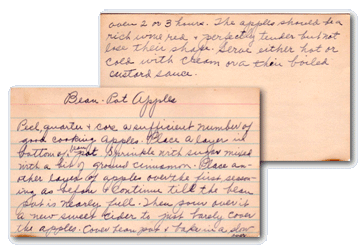 Bean-Pot Apples
Peel, quarter & core a sufficient number of
good cooking apples. Place a layer in
bottom of bean pot. Sprinkle with sugar mixed
with a bit of ground cinnamon. Place an-
other layer of apples over the first, season-
ing as before & continue till the bean
pot is nearly full. Then pour over it
a new sweet cider to just barely cover
the apples. Cover bean pot & bake in a slow
over
oven 2 or 3 hours. The apples should be a
rich wine red & perfectly tender but not
lose their shape. Serve either hot or
cold with cream or a thin boiled
custard sauce.